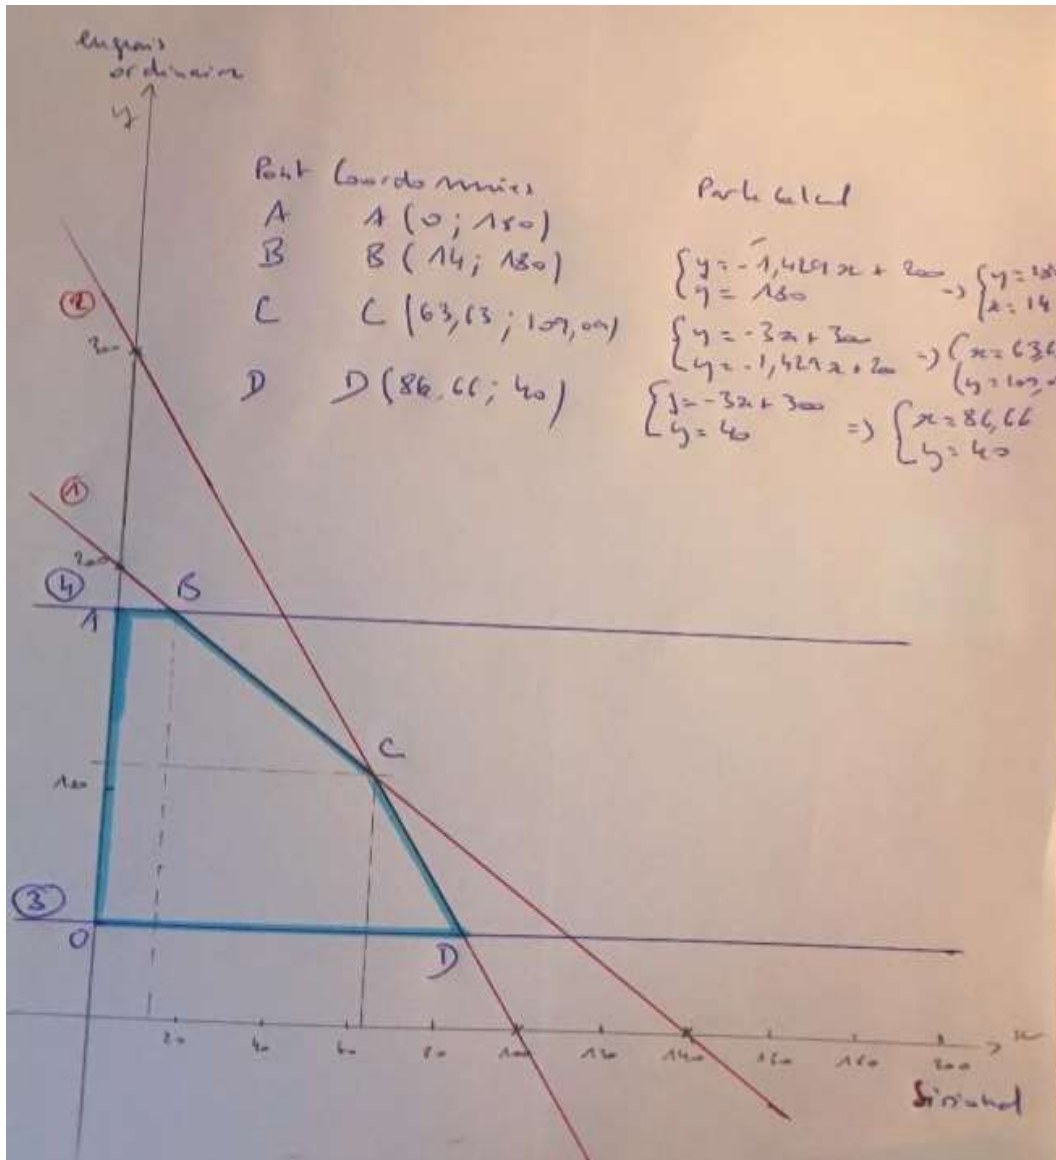 engrais
ordinaire
y
Point Coordonnées
A A (0; 180)
B B (14; 180)
C C (63,63; 109,09)
D D (86,66; 40)
Partie calcul
{ y = -1,429x + 200
y = 180 => { y = 18
x = 14
{ y = -3x + 300
y = -1,429x + 200 => { x = 63,6
y = 109,0
{ y = -3x + 300
y = 40 => { x = 86,66
y = 40
2
300
1
200
4
B
A
C
100
3
O
D
20 40 60 80 100 120 140 160 180 200
x